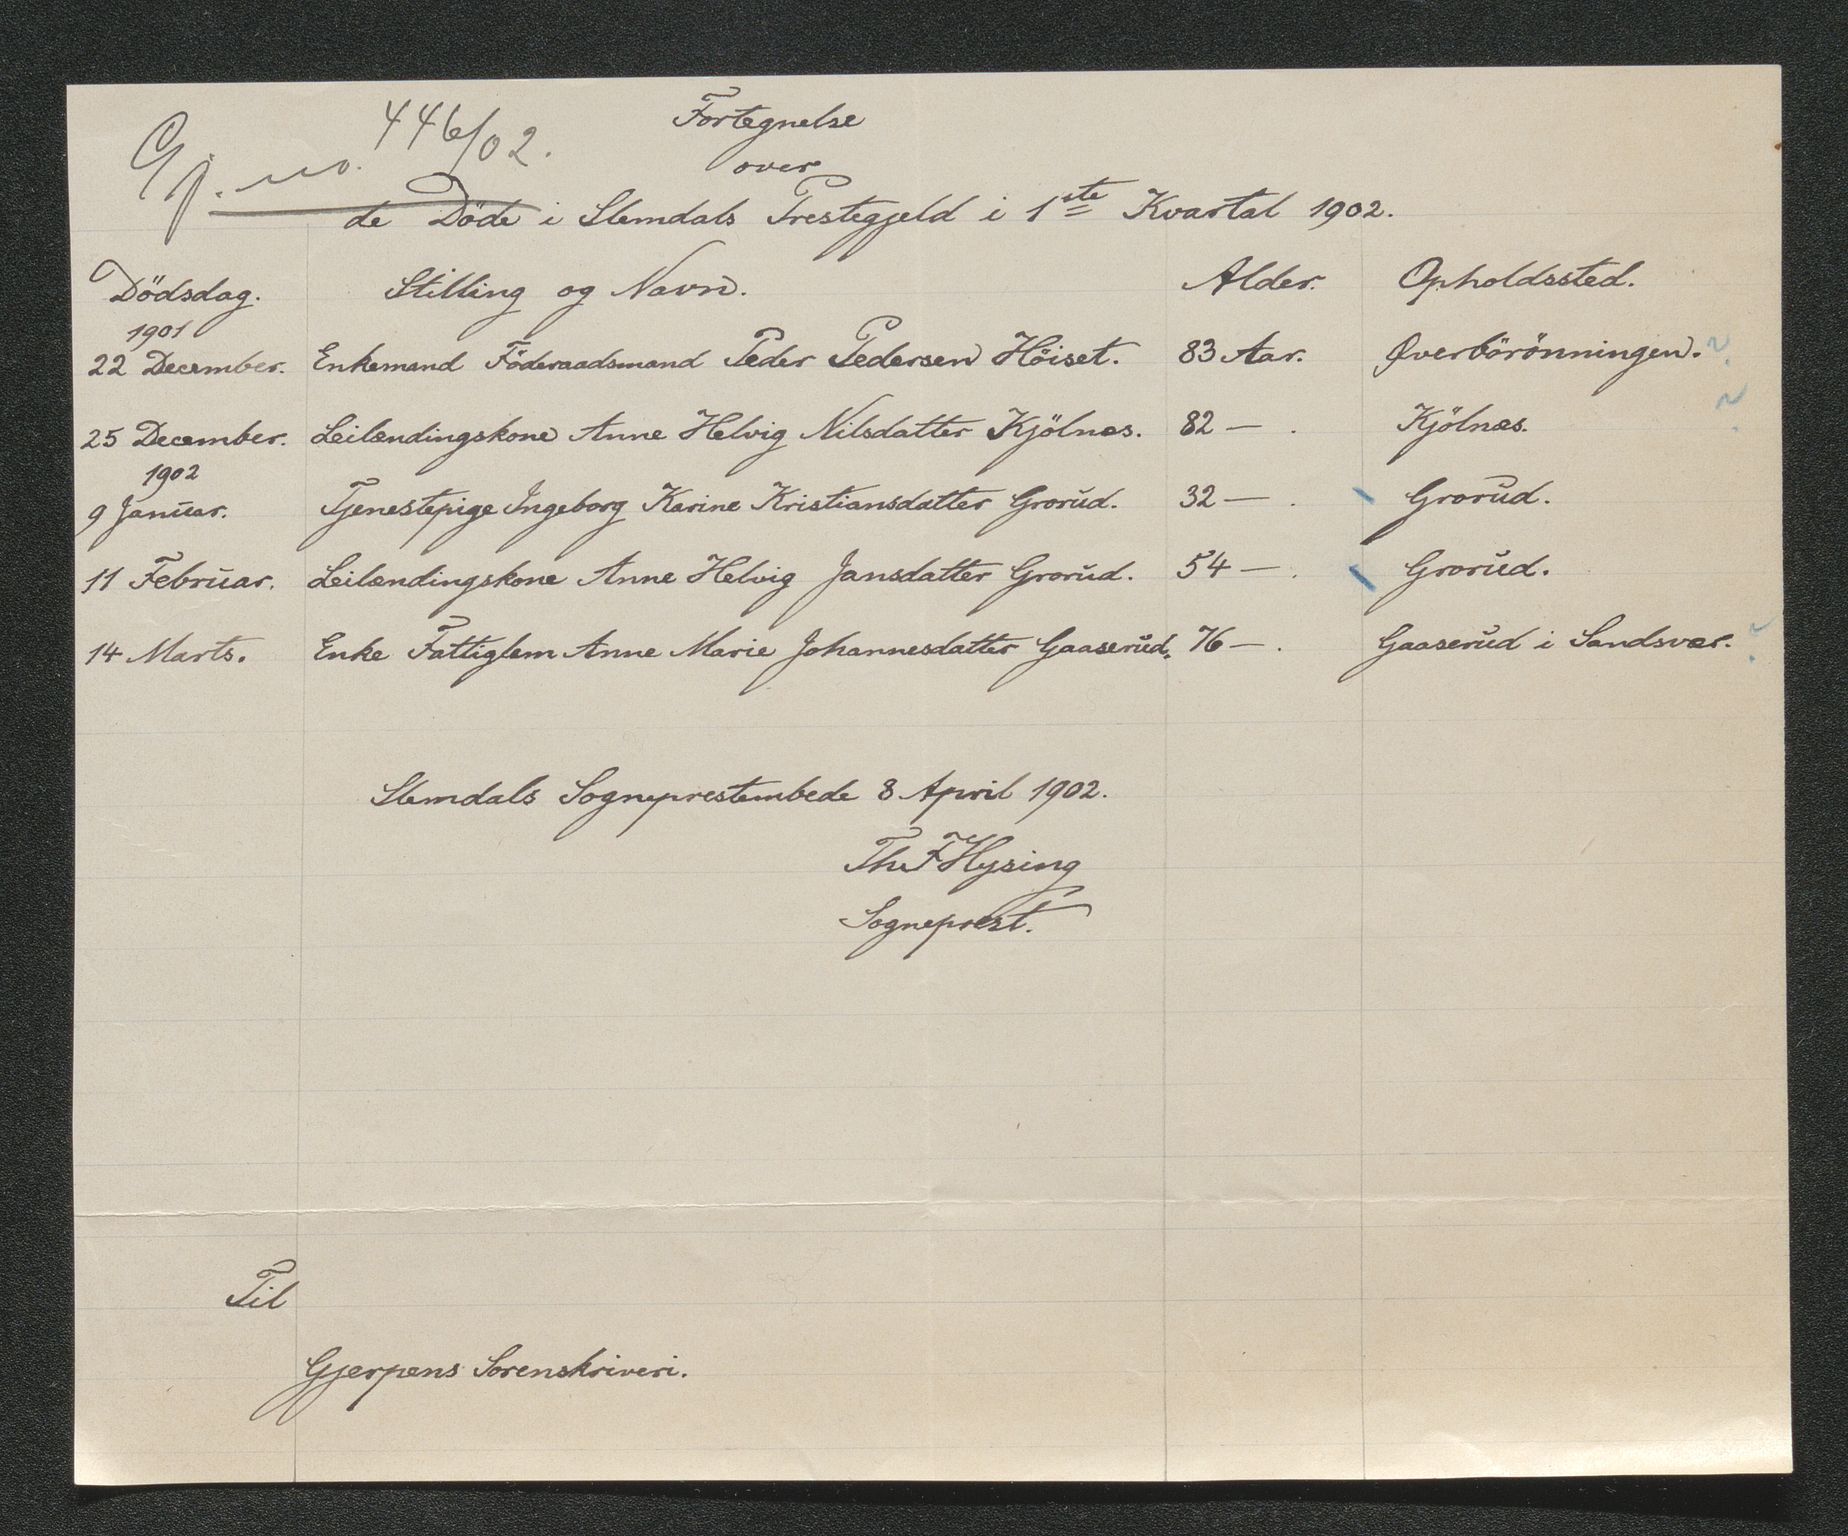 Gj. no. 446/02.
Fortegnelse
over
de Döde i Slemdals Prestegjeld i 1ste Kvartal 1902.
Dödsdag. Stilling og Navn. Alder. Opholdssted.
1901
22 December. Enkemand Föderaadsmand Peder Pedersen Höiset. 83 Aar. Øverbörönningen. ?
25 December. Leilændingskone Anne Helvig Nilsdatter Kjölnæs. 82 — . Kjölnæs. ?
1902
9 Januar. Tjenestepige Ingeborg Karine Kristiansdatter Grorud. 32 — . Grorud.
11 Februar. Leilændingskone Anne Helvig Jansdatter Grorud. 54 — . Grorud.
14 Marts. Enke Fattiglem Anne Marie Johannesdatter Gaaserud. 76 — . Gaaserud i Sandsvær. ?
Slemdals Sogneprestembede 8 April 1902.
Th. F Hysing
Sogneprest.
Til
Gjerpens Sorenskriveri.